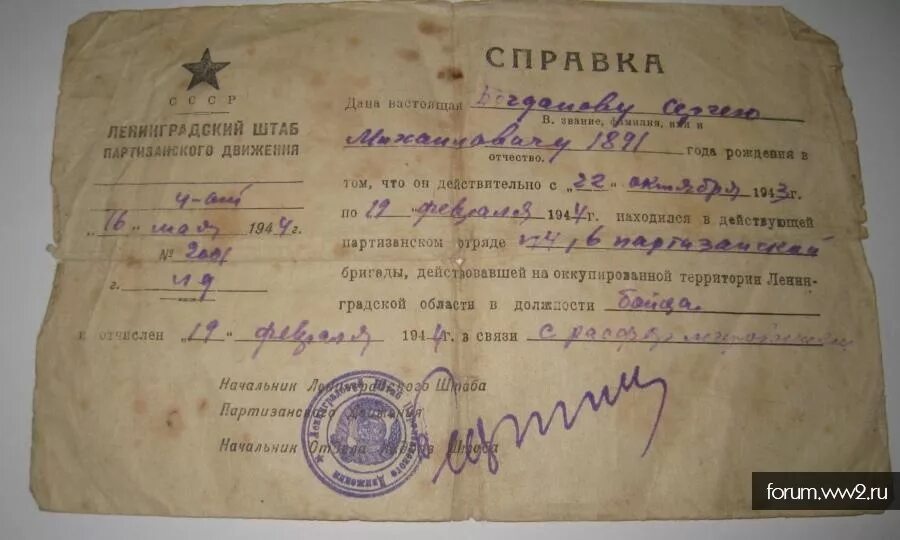 СССР
ЛЕНИНГРАДСКИЙ ШТАБ
ПАРТИЗАНСКОГО ДВИЖЕНИЯ
"16" мая 1944г.
№
г.
СПРАВКА
Дана настоящая Богданову Сергею
В. звание, фамилия, имя и
Михайловичу 1891 года рождения в
отчество.
том, что он действительно с "22" октября 1943г.
по 19 "февраля 1944г. находился в действующей
партизанском отряде 6 партизанской
бригады, действовавшей на оккупированной территории Ленин-
градской области в должности бойца.
и отчислен "19" февраля 1944г. в связи с расформированием
Начальник Ленинградского Штаба
Партизанского Движения
Начальник Отдела Кадров Штаба
Ленинградский Штаб Партизанского Движения
forum.ww2.ru